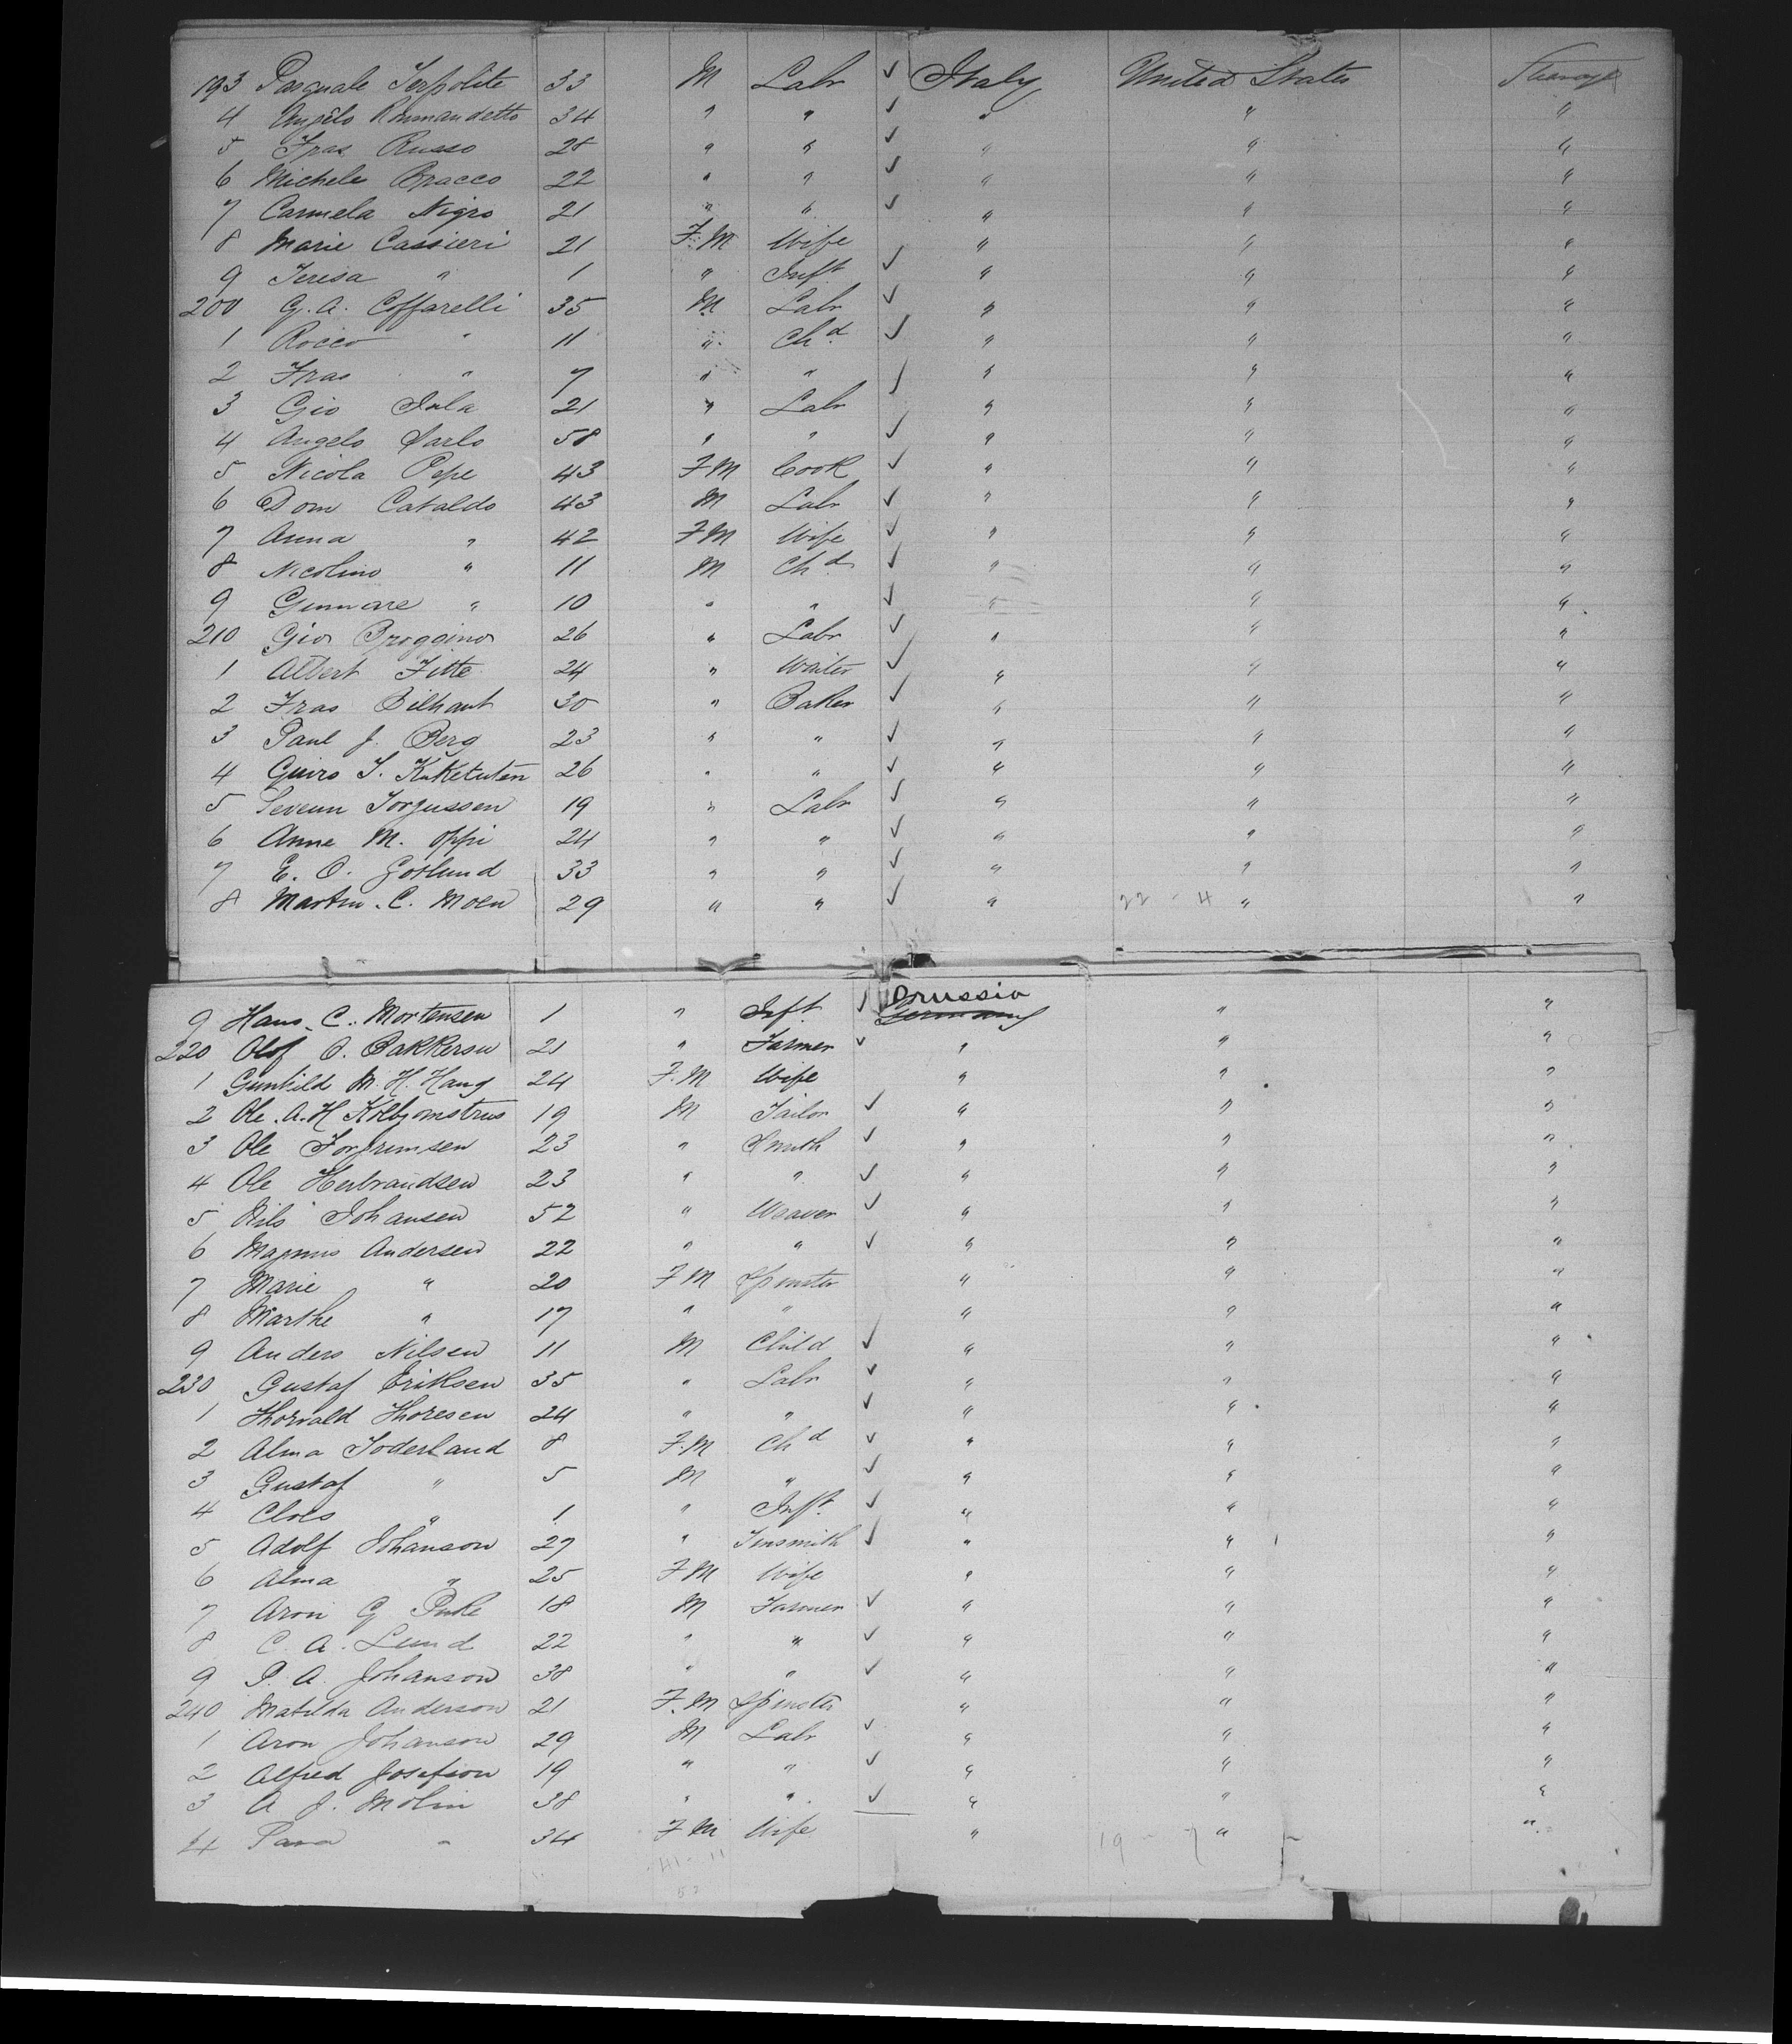 193 Pasquale Serpolite 33 M Labr ✓ Italy United States Steerage
4 Angelo Rommandetto 34 " " ✓ " " "
5 Fras Russo 28 " " ✓ " " "
6 Michele Bracco 22 " " ✓ " " "
7 Carmela Nigro 21 " " ✓ " " "
8 Marie Cassieri 21 F.M Wife " " "
9 Teresa " 1 " Inft ✓ " " "
200 G. A. Coffarelli 35 M Labr ✓ " " "
1 Rocco " 11 " Chd ✓ " " "
2 Fras " 7 " " ✓ " " "
3 Gio Iula 21 " Labr " " "
4 Angelo Sarlo 58 " " ✓ " " "
5 Nicola Pepe 43 F M Cook ✓ " " "
6 Dom Cataldo 43 M Labr ✓ " " "
7 Anna " 42 F M Wife ✓ " " "
8 Nicolino " 11 M Chd ✓ " " "
9 Gennare " 10 " " ✓ " " "
210 Gio Broggino 26 " Labr ✓ " " "
1 Albert Fitte 24 " Waiter ✓ " " "
2 Fras Bilhaut 30 " Baker ✓ " " "
3 Paul J. Berg 23 " " ✓ " " "
4 26 " " ✓ " " "
5 Severin Torjussen 19 " Labr ✓ " " "
6 Anne M. Oppi 24 " " ✓ " " "
7 E. O. Goslund 33 " " ✓ " " "
8 Martin. C. Moen 29 " " ✓ " 22 - 4 " "
Prussia
9 Hans. C. Mortensen 1 " Inft ✓ Germany " "
220 Olof O. Bakkersu 21 " Farmer ✓ " " "
1 Gunhild M. H. Haug 24 F. M Wife " " "
2 Ole. A. H 19 M Tailor ✓ " " "
3 Ole Torgrimsen 23 " Smith ✓ " " "
4 Ole Herbrandsen 23 " " ✓ " " "
5 Nils Johansen 52 " Weaver ✓ " " "
6 Magnus Andersen 22 " " ✓ " " "
7 Marie " 20 F M Spinster " " "
8 Marthe " 17 " " " " "
9 Anders Nilsen 11 M Child ✓ " " "
230 Gustaf Eriksen 35 " Labr ✓ " " "
1 Thorvald Thoresen 24 " " ✓ " " "
2 Alma Soderland 8 F. M Chd ✓ " " "
3 Gustaf " 5 M " ✓ " " "
4 Cloes " 1 " Inft. ✓ " " "
5 Adolf Johanson 27 " Tinsmith ✓ " " "
6 Alma " 25 F M Wife " " "
7 Aron G 18 M Farmer ✓ " " "
8 C. A. Lund 22 " " ✓ " " "
9 P. A. Johanson 38 " " ✓ " " "
240 Matilda Anderson 21 F. M Spinster " " "
1 Aron Johanson 29 M Labr ✓ " " "
2 Alfred Josefson 19 " " ✓ " " "
3 A J. Molin 38 " " ✓ " " "
4 " 34 F M Wife " 19 - 7 " "
41 - 11
52